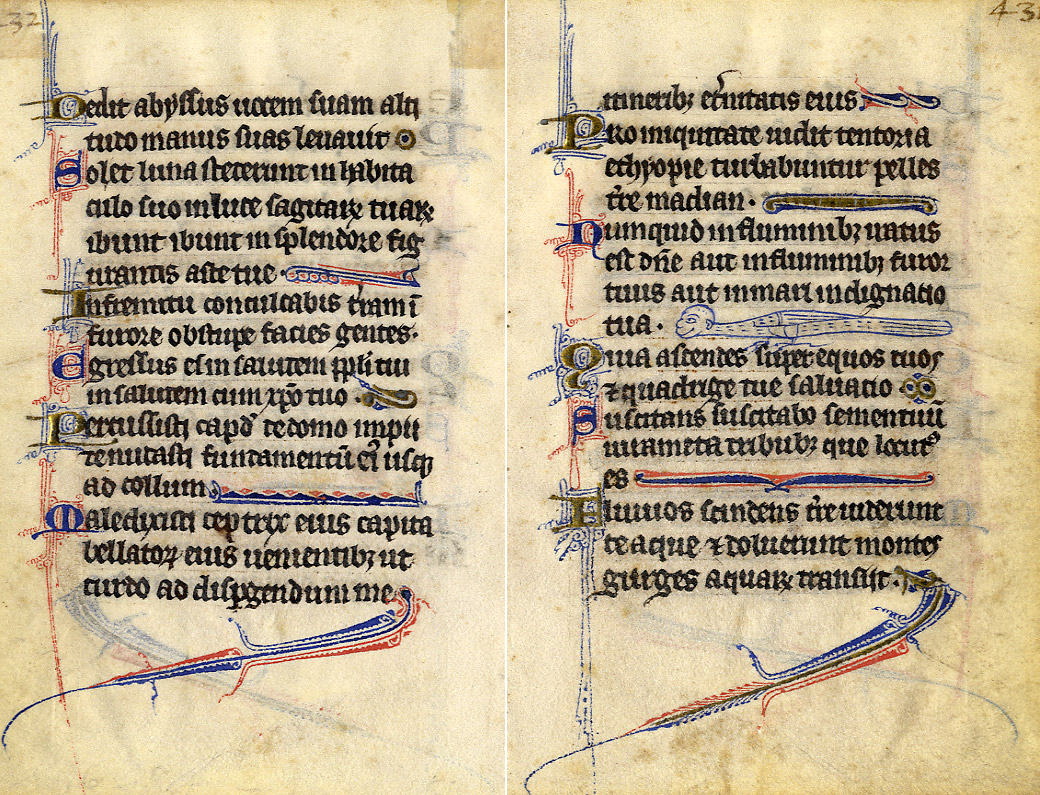 432
Dedit abyssus uocem suam alti
tudo manus suas leuauit
Sol et luna steterunt in habita
culo suo in luce sagitarꝝ tuarꝝ
ibunt ibunt in splendore fig
urantis aste tue ·
In fremitu conculcabis t̾ram ī
furore obstupe facies gentes ·
Egressus es in salutem ppl̄i tui
in salutem cum xp̄o tuo
Percussisti capđ de domo impii
denudasti fundamentū ei᷒ usqꝫ
ad collum
Maledixisti cep trix eius capita
bellatoꝝ eius uenientibꝫ ut
turbo ad dispgendum me
431
itineribꝫ et̾nitatis eius
Pro iniquitate uidit tentoria
ethyopie turbabuntur pelles
t̾re madian ·
Nunquid in fluminibꝫ iratus
est dn̄e aut in fluminibꝫ furor
tuus aut in mari indignatio
tua ·
Quia ascendes super equos tuos
⁊ quadrige tue saluatio
Suscitans suscitabo semen tuū
iuramenta tribubꝫ que locut᷒
es
Fluuios scindens t̾re uiderunt
te aque ⁊ doluerunt montes
gurges aquarꝝ transiit ·